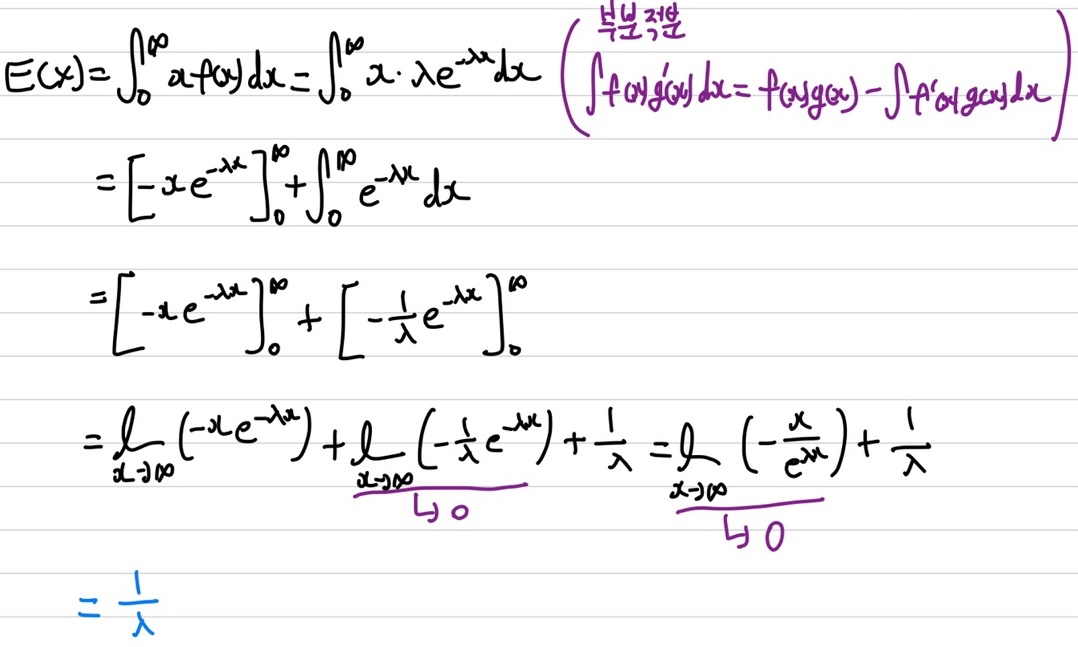 E(X) = ∫₀^∞ x f(x) dx = ∫₀^∞ x · λe^{-λx} dx ( 부분적분 ∫f(x)g'(x)dx = f(x)g(x) - ∫f'(x)g(x)dx )
= [-xe^{-λx}]₀^∞ + ∫₀^∞ e^{-λx} dx
= [-xe^{-λx}]₀^∞ + [-\frac{1}{λ}e^{-λx}]₀^∞
= lim_{x→∞} (-xe^{-λx}) + lim_{x→∞} (-\frac{1}{λ}e^{-λx}) + \frac{1}{λ} = lim_{x→∞} (-\frac{x}{e^{λx}}) + \frac{1}{λ}
↳ 0 ↳ 0
= \frac{1}{λ}